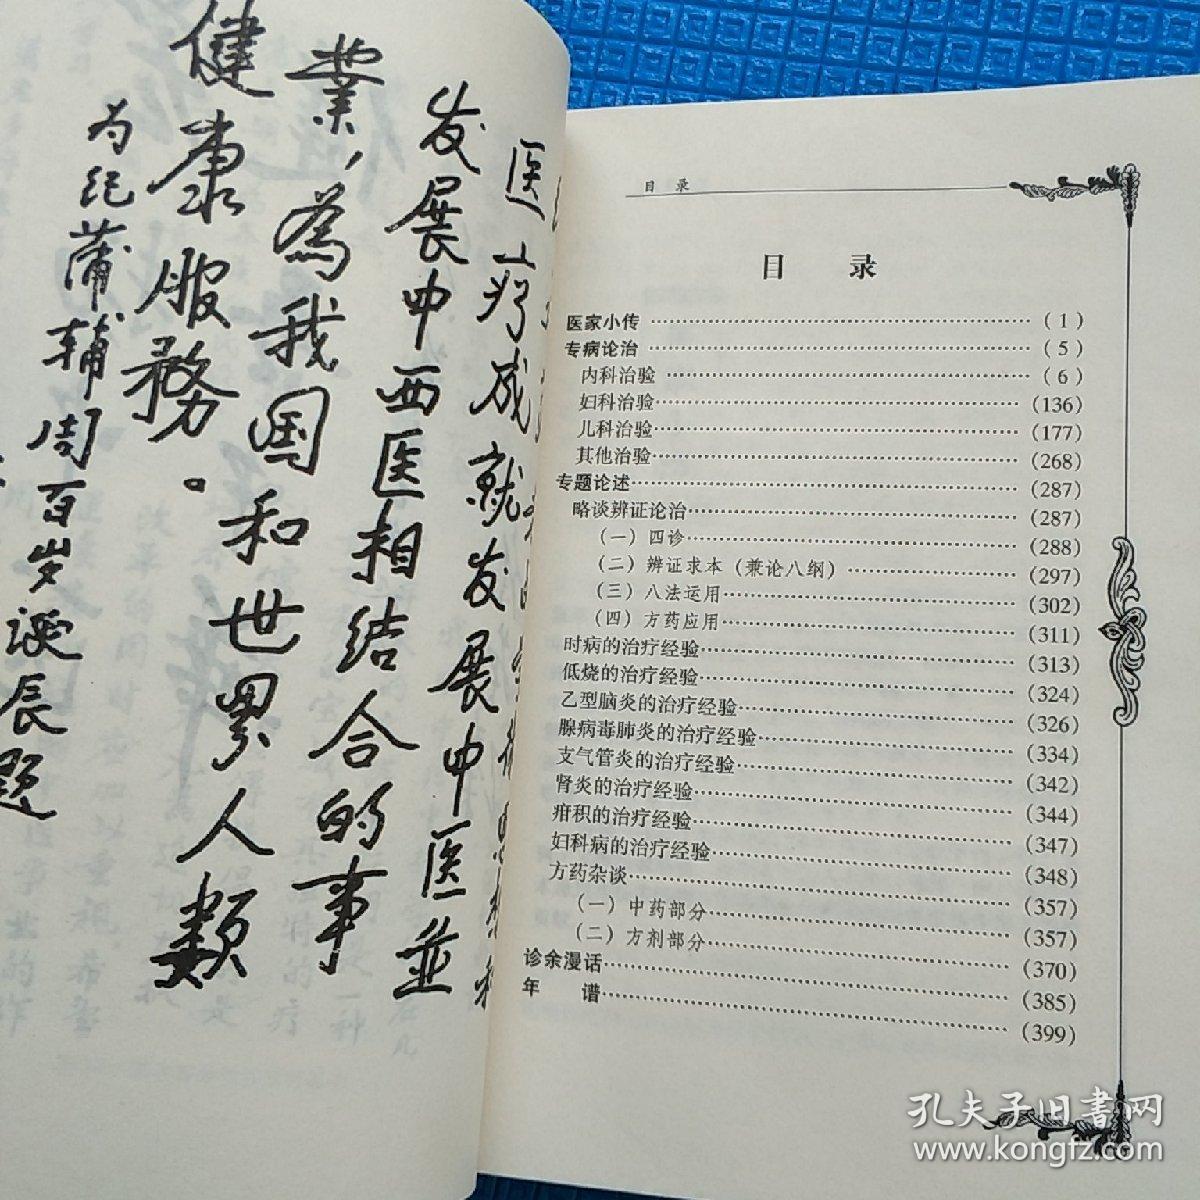 医疗成就发展中医並
发展中西医相结合的事
業，為我国和世界人類
健康服務。
为纪蒲辅周百岁诞辰题
目 录
目 录
医家小传 (1)
专病论治 (5)
内科治验 (6)
妇科治验 (136)
儿科治验 (177)
其他治验 (268)
专题论述 (287)
略谈辨证论治 (287)
（一）四诊 (288)
（二）辨证求本（兼论八纲） (297)
（三）八法运用 (302)
（四）方药应用 (311)
时病的治疗经验 (313)
低烧的治疗经验 (324)
乙型脑炎的治疗经验 (326)
腺病毒肺炎的治疗经验 (334)
支气管炎的治疗经验 (342)
肾炎的治疗经验 (344)
疳积的治疗经验 (347)
妇科病的治疗经验 (348)
方药杂谈 (357)
（一）中药部分 (357)
（二）方剂部分 (370)
诊余漫话 (385)
年 谱 (399)
孔夫子旧書网
www.kongfz.com